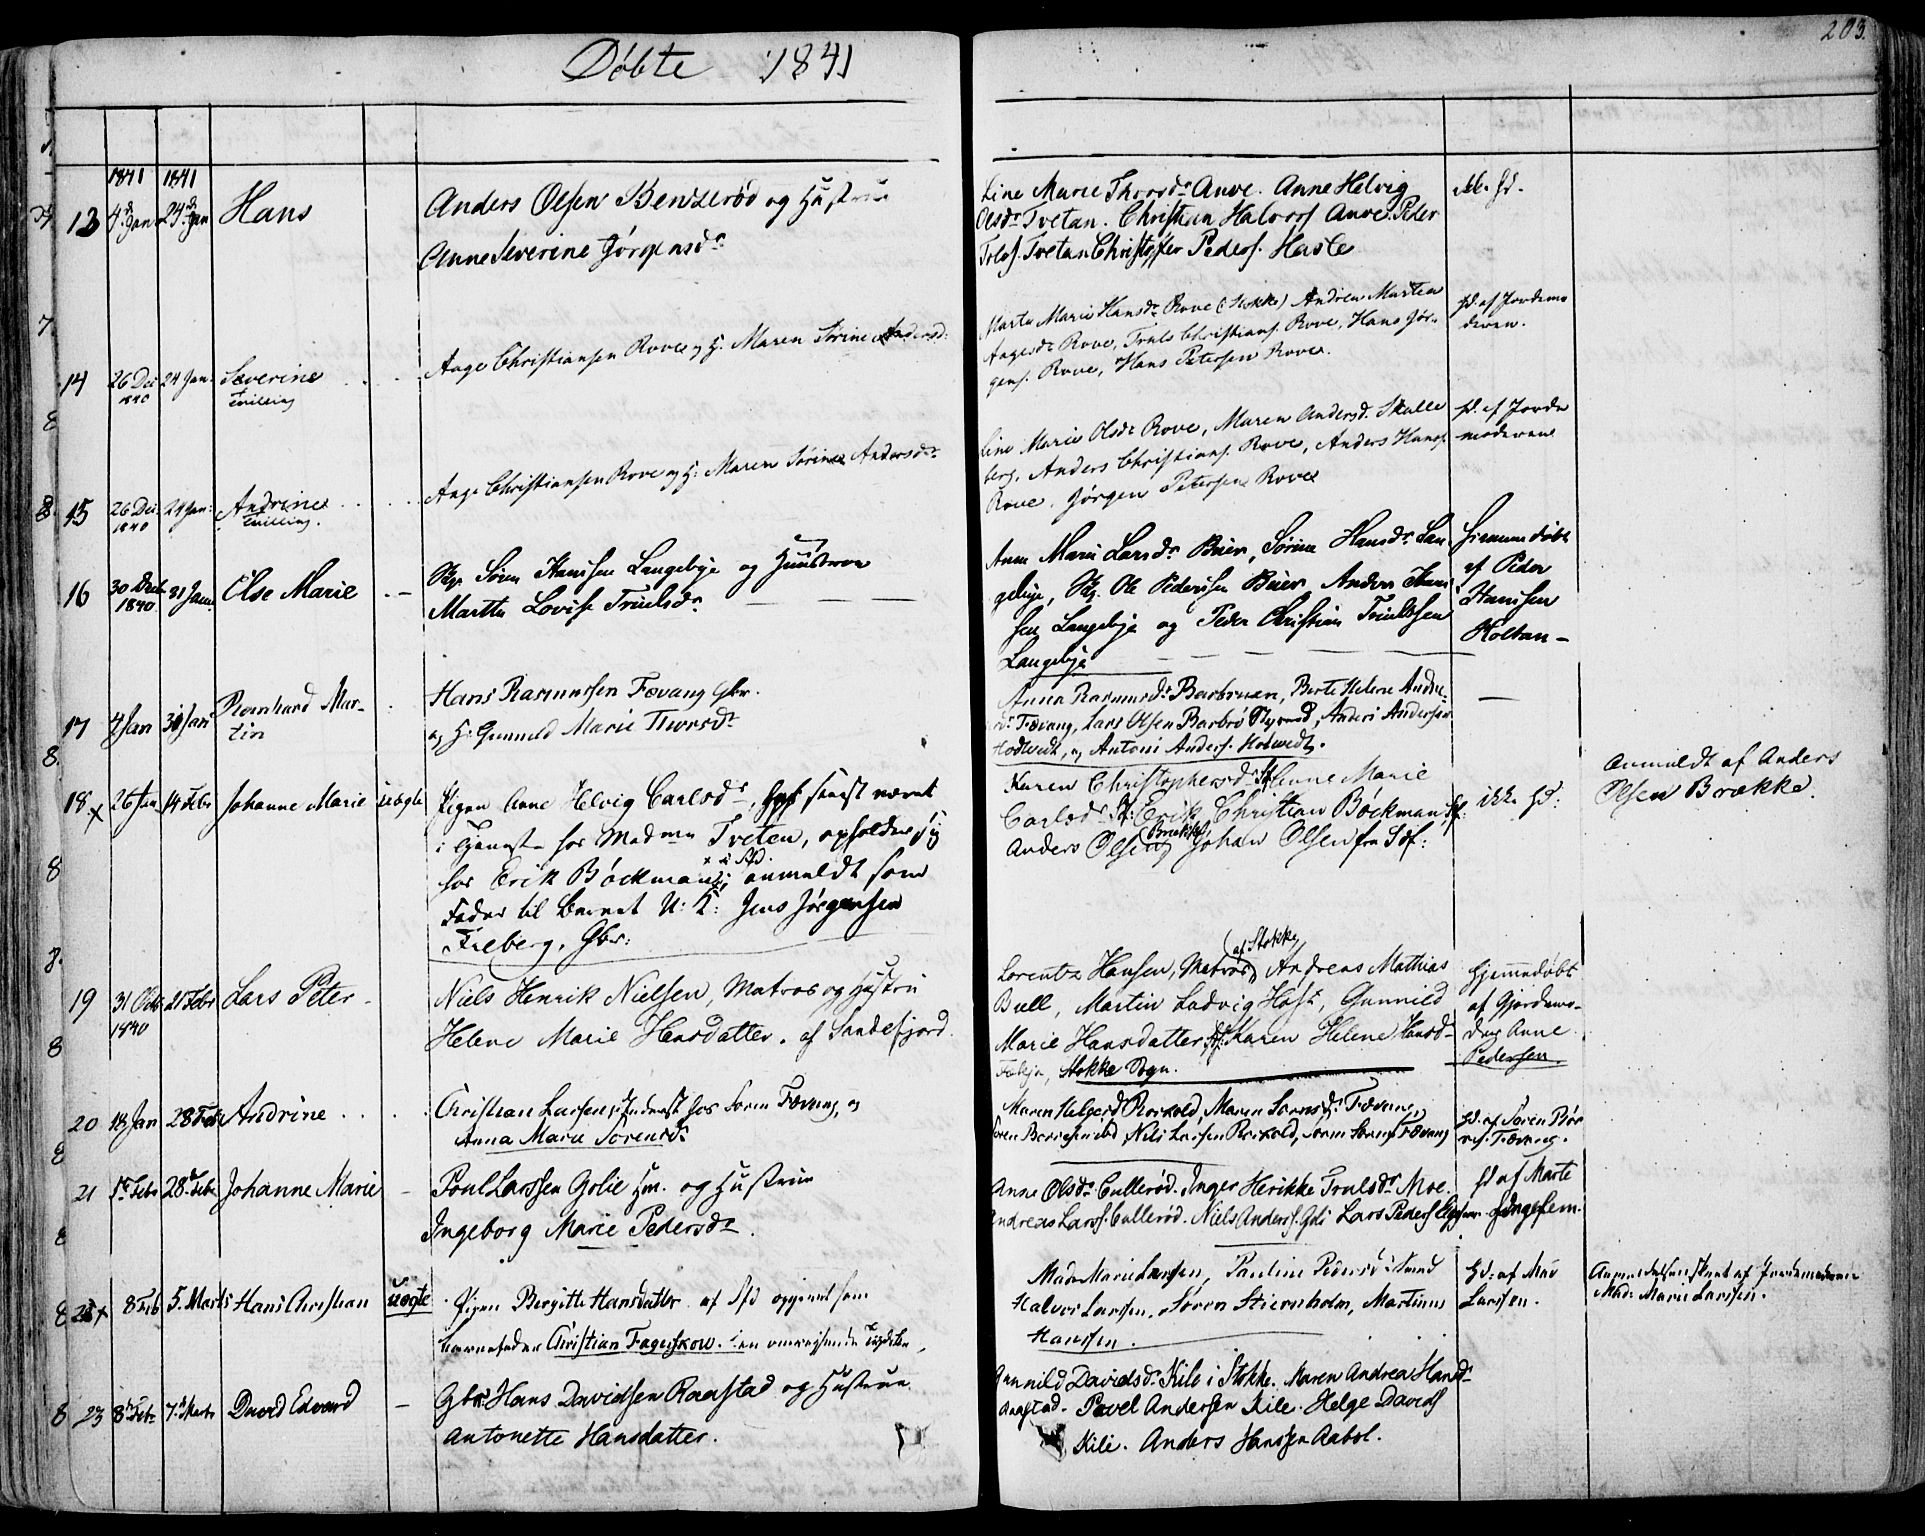 Døbte 1841
203.
1841 1841
13 4de Jan 24de Jan Hans
Anders Olsen Benserød og Hustrue
Anne Severine Jørgensdr
Line Marie Thorsdr Anve. Anne Helvig
Olsdr Tvetan. Christian Halvors. Anve. Peder
Trols. Tvetan Christoffer Peders. Hasle
14 26 Dec 1840 24 Jan. Severine Tvilling
Aage Christiansen Rove og H. Maren Sørine Andersd:
Marte Marie Hansdr Rove (Stokke) Andrea Marten
Aagesdr Rove, Truls Christians. Rove, Hans Jør-
gens. Rove, Hans Petersen Rove.
hd. af Jordemo
deren.
15 26 Dec. 1840 24 Jan: Andrine Tvilling.
Aage Christiansen Rove og H: Maren Sørine Andersdr
Line Marie Olsdr Rove, Maren Andersd. Skalle
berg, Anders Christians. Rove, Anders Hans.
Rove, Jørgen Petersen Rove
hd. af Jorde
moderen
16 30 Decb 1840 31 Janu Else Marie
Søren Hansen Langebye og Huustroe
Marthe Lovise Truelsdr
Anne Marie Larsdr Buer, Sørine Hansdr Lan
gebye, Ole Pedersen Buer Anders Han
sen Langebye og Peder Christian Truelsen
Langebye
Hiemmedøbt
af Peder
Hansen
Holtan
17 4 Jan 31 Jan Bernhard Mar-
tin
Hans Rasmussen Fævang Gbr.
og H: Gunnild Marie Thorsdr
Anna Rasmusdr Barbroen, Berte Helene Andre-
dr Fævang, Lars Olsen Barbrø, Anders Andersen
Hotvedt, og Antoni Anders. Hotvedt.
18 x 26 Jan 14 Febr Johanne Marie uægte
Pigen Anne Helvig Carlsdr, sidst været
i Tjeneste hos Madme Tveten, opholder sig
hos Erik Böckman, anmeldt som
Fader til Barnet U: K: Jens Jørgensen
Freberg, Gbr:
Karen Christophersdr Anne Marie
Carlsdr Erik Christian Böckman Sf:
Anders Olsen Brække, Johan Olsen fra Sdf:
ikke hd:
Anmeldt af Anders
Olsen Brække.
19 31 Octb 1840 21 Febr Lars Peter
Niels Henrik Nielsen, Matros og Hustru
Helene Marie Hansdatter. af Sandefjord.
Lorents Hansen, Matros, af Stokke Andreas Mathias
Bull, Martin Ludvig Høst, Gunnild
Marie Hansdatter, Karen Helene Hansd-
Stokke Sogn.
Hjemmedøbt
af Gjordemo-
der Anne
Pedersen.
20 18 Jan 28 Feb Andrine
Christian Larsen, Inderst hos Søren Fævang, og
Anna Marie Sørensdr
Maren Helgesd Rorkold, Maren Sørensdr Fævang,
Nils Larsen Rorkold, Søren Sørens. Fævang
hd. af Søren Bør
res. Fævang.
21 1ste Febr 28de Febr Johanne Marie
Poul Larssen Golie Hm. og Hustrue
Ingeborg Marie Pedersdr.
Anne Olsdr Cullerød. Inger Herikke Trulsdr Moe.
Andreas Larss. Cullerød. Niels Anders. Goli Lars Peders
hd af Marte
22 x 8 Feb 5. Marts Hans Christian uægte
Pigen Birgitte Hansdatter af Sfd opgivet som
barnefader Christian Fagerskow. en omreisende
Mad: Marie Larssen, Pauline Pedersdr
Halvor Larssen, Søren Stiernholm, Martinus
Hanssen.
hd: af Mad
Larssen.
Anmeldelsen skeet af Jordemoderen
Mad: Maren Larssen.
23 8de Febr 7de Marts David Edvard
Gbr: Hans Davidsen Raastad og Hustrue
Antonette Hansdatter.
Gunnild Davidsdr Kile i Stokke. Maren Andrea Hansdr
Raastad. Povel Andersen Kile. Helge Davids
Kile. Anders Hanssen Aabol.